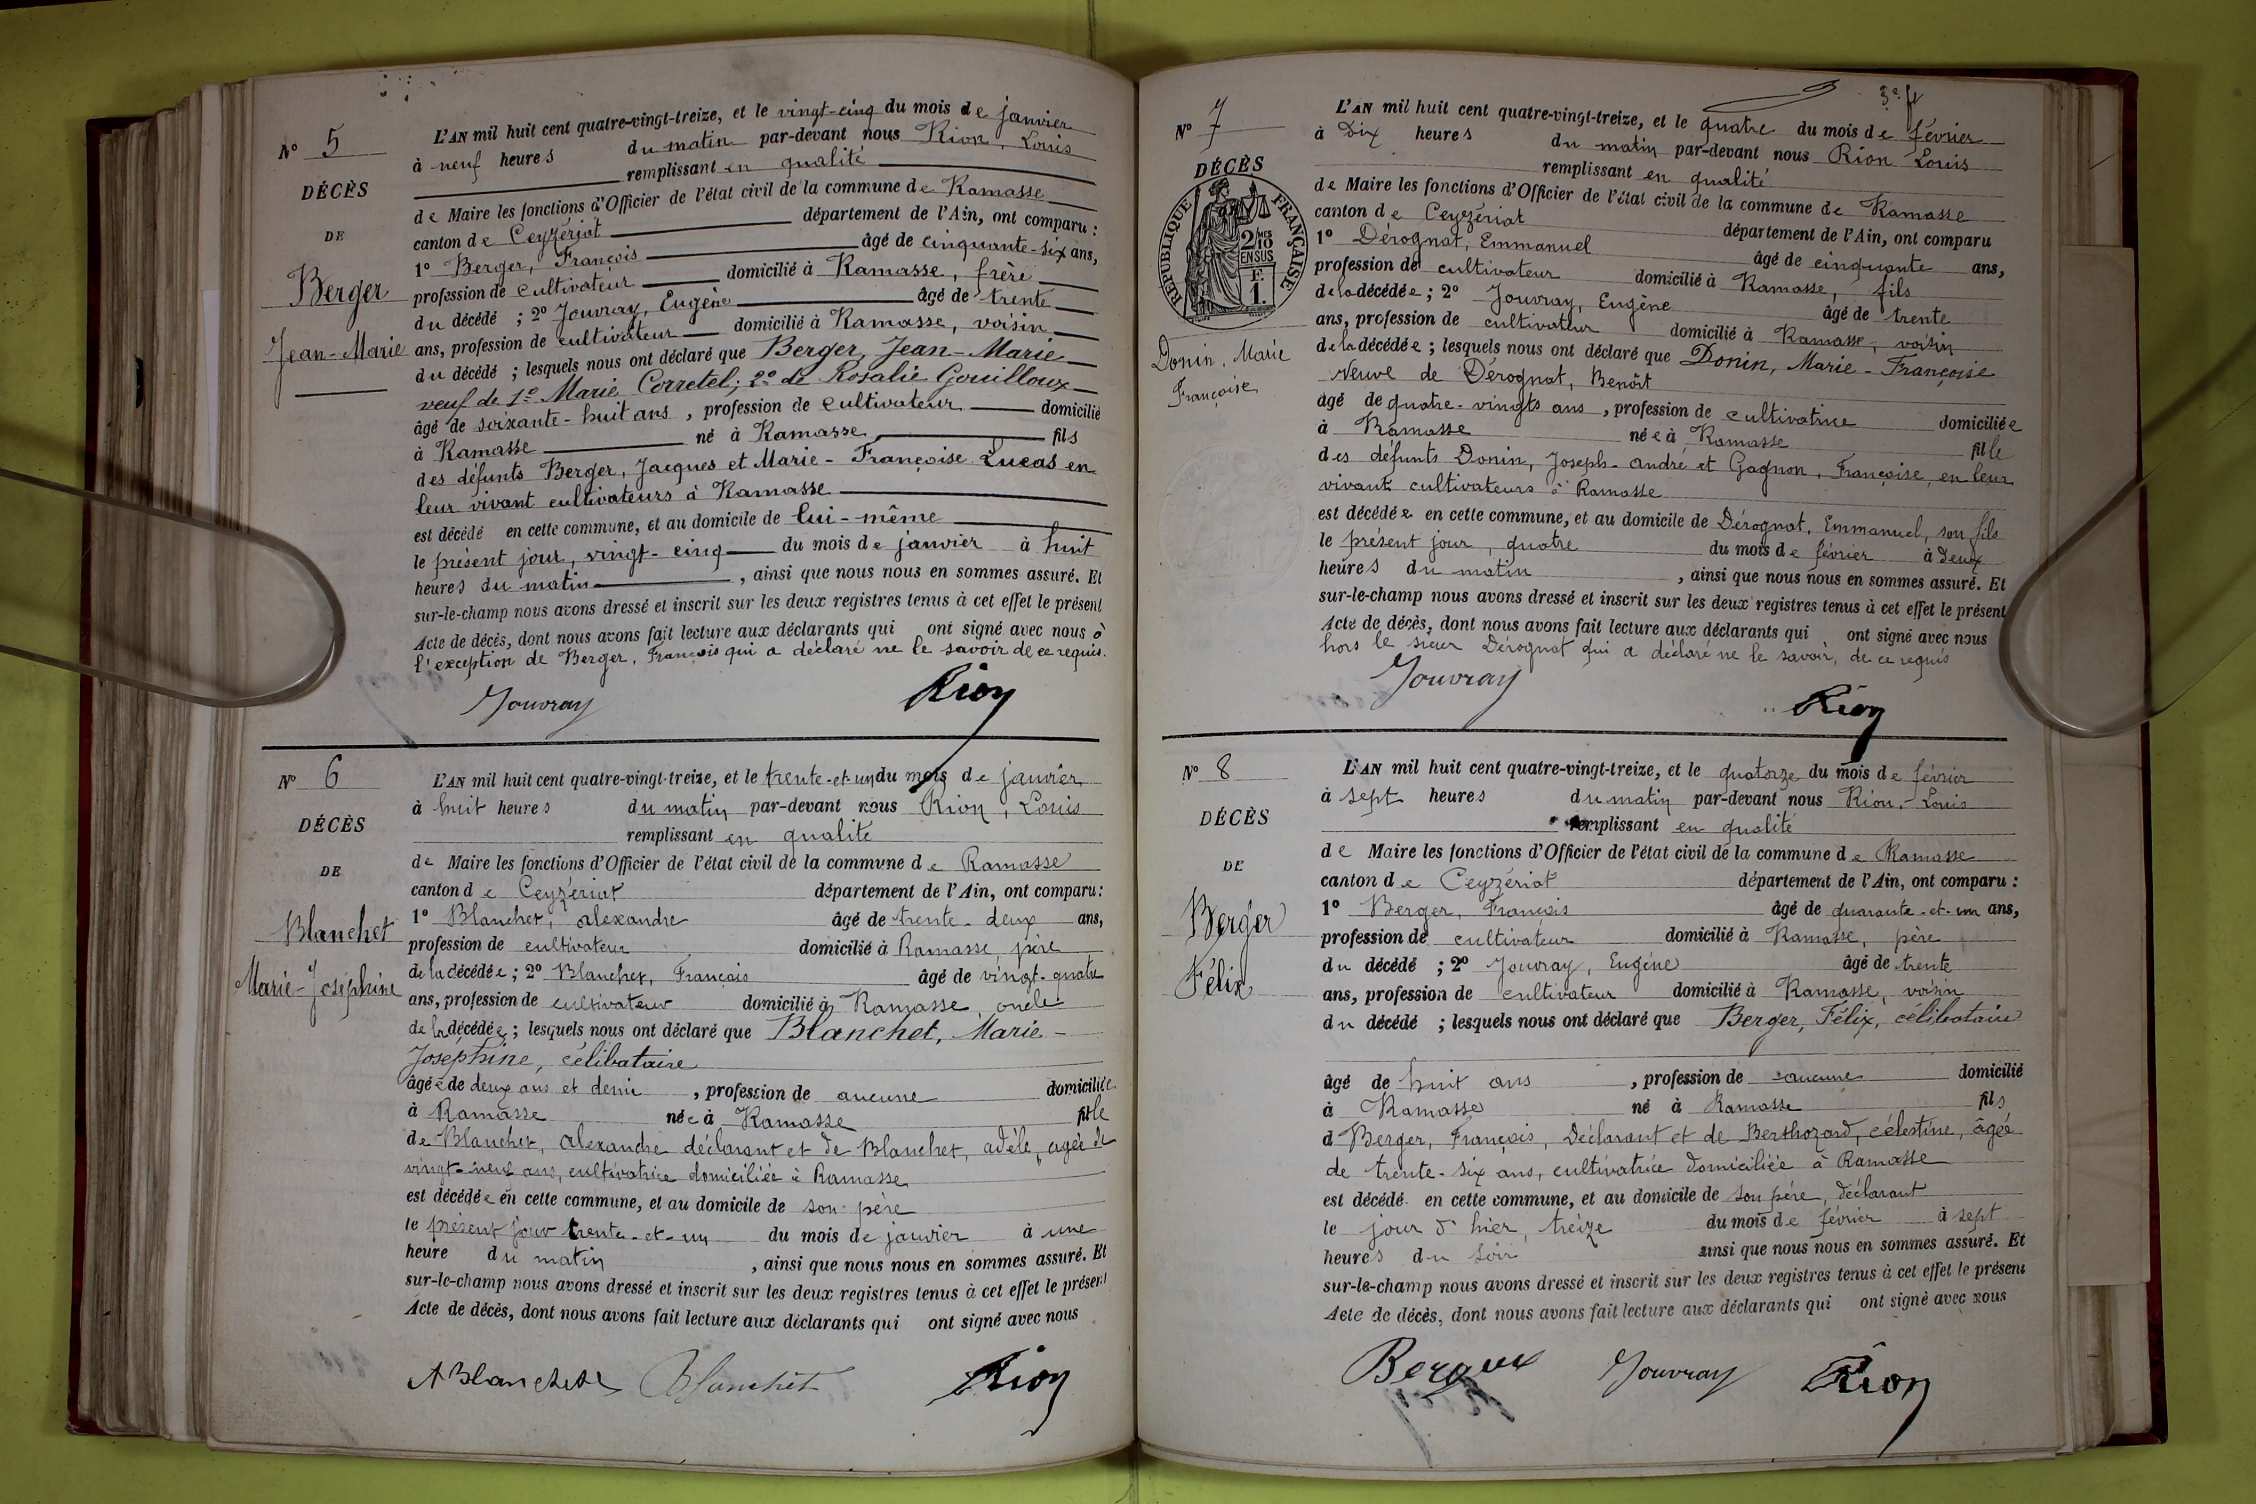 N° 5
DÉCÈS
DE
Berger
Jean-Marie
L'AN mil huit cent quatre-vingt-treize, et le vingt-cinq du mois de janvier
à neuf heures du matin par-devant nous Rion, Louis
remplissant en qualité
de Maire les fonctions d'Officier de l'état civil de la commune de Ramasse
canton de Ceyzériat département de l'Ain, ont comparu :
1° Berger, François âgé de cinquante-six ans,
profession de cultivateur domicilié à Ramasse, frère
du décédé ; 2° Jouvray, Eugène âgé de trente
ans, profession de cultivateur domicilié à Ramasse, voisin
du décédé ; lesquels nous ont déclaré que Berger, Jean-Marie
veuf de 1° Marie Corretel; 2° de Rosalie Gouilloux
âgé de soixante-huit ans, profession de cultivateur domicilié
à Ramasse né à Ramasse fils
des défunts Berger, Jacques et Marie-Françoise Lucas en
leur vivant cultivateurs à Ramasse
est décédé en cette commune, et au domicile de lui-même
le présent jour, vingt-cinq du mois de janvier à huit
heures du matin, ainsi que nous nous en sommes assuré. Et
sur-le-champ nous avons dressé et inscrit sur les deux registres tenus à cet effet le présent
Acte de décès, dont nous avons fait lecture aux déclarants qui ont signé avec nous à
l'exception de Berger, François qui a déclaré ne le savoir de ce requis.
Jouvray Rion
N° 6
DÉCÈS
DE
Blanchet
Marie-Joséphine
L'AN mil huit cent quatre-vingt-treize, et le trente-et-un du mois de janvier
à huit heures du matin par-devant nous Rion, Louis
remplissant en qualité
de Maire les fonctions d'Officier de l'état civil de la commune de Ramasse
canton de Ceyzériat département de l'Ain, ont comparu :
1° Blanchet, alexandre âgé de trente-deux ans,
profession de cultivateur domicilié à Ramasse, père
de la décédée ; 2° Blanchet, François âgé de vingt-quatre
ans, profession de cultivateur domicilié à Ramasse, oncle
de la décédée ; lesquels nous ont déclaré que Blanchet, Marie-
Joséphine, célibataire
âgée de deux ans et demie, profession de aucune domiciliée
à Ramasse née à Ramasse fille
de Blanchet, alexandre déclarant et de Blanchet, adèle, agée de
vingt-neuf ans, cultivatrice domiciliée à Ramasse
est décédée en cette commune, et au domicile de son père
le présent jour trente-et-un du mois de janvier à une
heure du matin, ainsi que nous nous en sommes assuré. Et
sur-le-champ nous avons dressé et inscrit sur les deux registres tenus à cet effet le présent
Acte de décès, dont nous avons fait lecture aux déclarants qui ont signé avec nous
A Blanchet Blanchet Rion
3e ft
N° 7
DÉCÈS
RÉPUBLIQUE FRANÇAISE
2/10 MES
EN SUS
1 F.
Donin, Marie
Françoise
L'AN mil huit cent quatre-vingt-treize, et le quatre du mois de février
à Dix heures du matin par-devant nous Rion Louis
remplissant en qualité
de Maire les fonctions d'Officier de l'état civil de la commune de Ramasse
canton de Ceyzériat département de l'Ain, ont comparu
1° Dérognat, Emmanuel âgé de cinquante ans,
profession de cultivateur domicilié à Ramasse, fils
de la décédée ; 2° Jouvray, Eugène âgé de trente
ans, profession de cultivateur domicilié à Ramasse, voisin
de la décédée ; lesquels nous ont déclaré que Donin, Marie-Françoise
veuve de Dérognat, Benoît
âgé de quatre-vingts ans, profession de cultivatrice domiciliée
à Ramasse née à Ramasse fille
des défunts Donin, Joseph-andré et Gagnon, Françoise, en leur
vivant cultivateurs à Ramasse
est décédée en cette commune, et au domicile de Dérognat, Emmanuel, son fils
le présent jour, quatre du mois de février à deux
heures du matin, ainsi que nous nous en sommes assuré. Et
sur-le-champ nous avons dressé et inscrit sur les deux registres tenus à cet effet le présent
Acte de décès, dont nous avons fait lecture aux déclarants qui ont signé avec nous
hors le sieur Dérognat qui a déclaré ne le savoir, de ce requis
Jouvray Rion
N° 8
DÉCÈS
DE
Berger
Félix
L'AN mil huit cent quatre-vingt-treize, et le quatorze du mois de février
à sept heures du matin par-devant nous Rion, Louis
remplissant en qualité
de Maire les fonctions d'Officier de l'état civil de la commune de Ramasse
canton de Ceyzériat département de l'Ain, ont comparu :
1° Berger, François âgé de quarante-et-un ans,
profession de cultivateur domicilié à Ramasse, père
du décédé ; 2° Jouvray, Eugène âgé de trente
ans, profession de cultivateur domicilié à Ramasse, voisin
du décédé ; lesquels nous ont déclaré que Berger, Félix, célibataire
âgé de huit ans, profession de aucune domicilié
à Ramasse né à Ramasse fils
d Berger, François, Déclarant et de Berthozard, célestine, âgée
de trente-six ans, cultivatrice domiciliée à Ramasse
est décédé en cette commune, et au domicile de son père, déclarant
le jour d'hier, treize du mois de février à sept
heures du soir ainsi que nous nous en sommes assuré. Et
sur-le-champ nous avons dressé et inscrit sur les deux registres tenus à cet effet le présent
Acte de décès, dont nous avons fait lecture aux déclarants qui ont signé avec nous
Berger Jouvray Rion